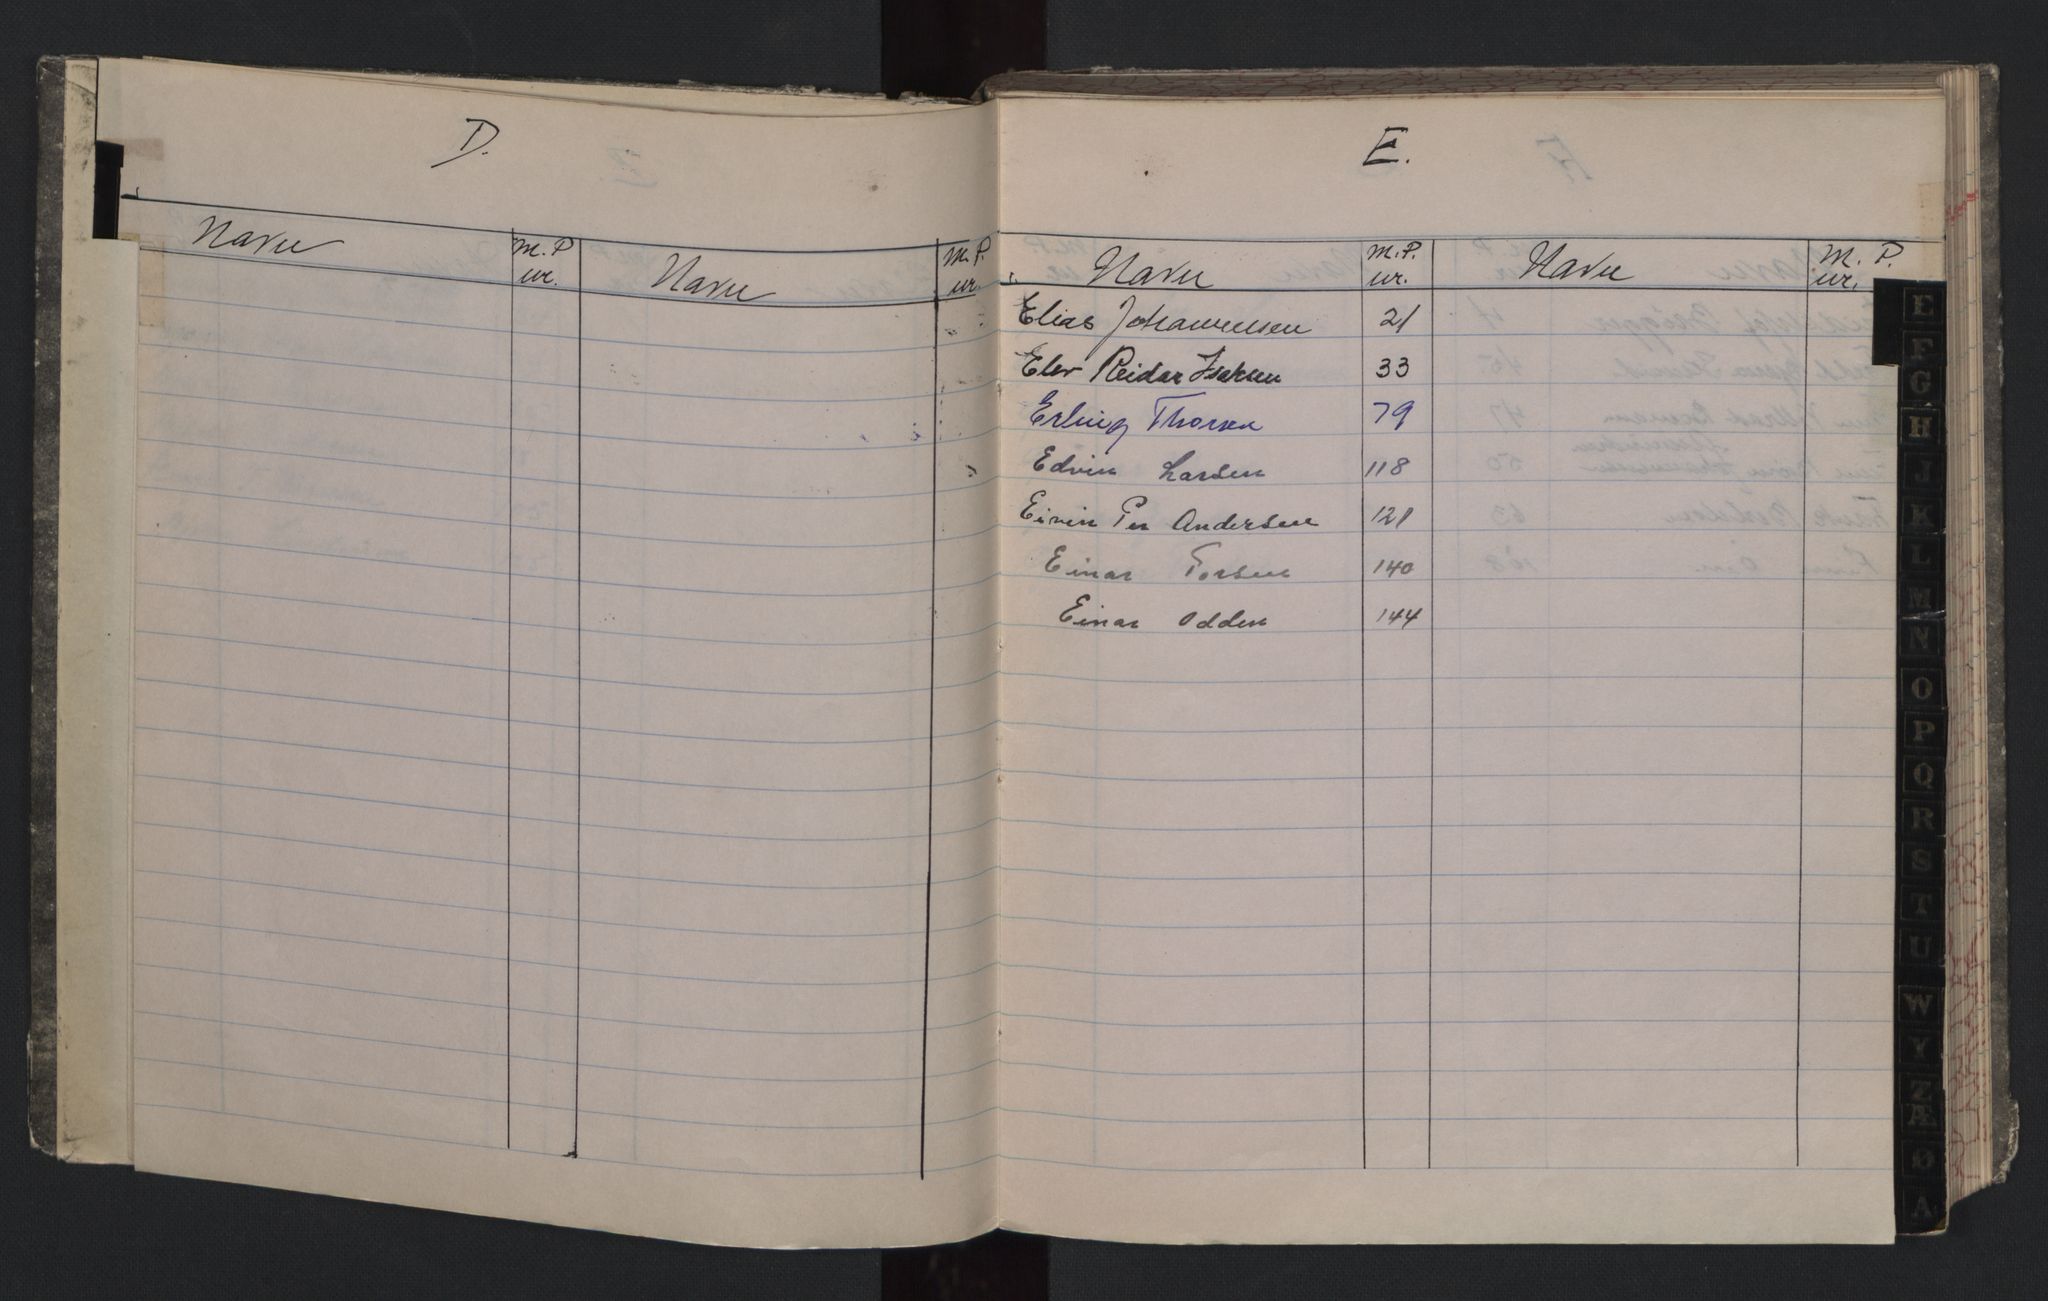 D.
Navn
M. P. nr.
Navn
M. P. nr.
E.
Navn
M. P. nr.
Navn
M. P. nr.
Elias Johannensen 21
Elev Reidar Isaksen 33
Erling Thorsen 79
Edvin Larsen 118
Eivin Per Andersen 121
Einar Torsen 140
Einar Odden 144
E
F
G
H
J
K
L
M
N
O
P
Q
R
S
T
U
W
Y
Z Æ
Ø
A